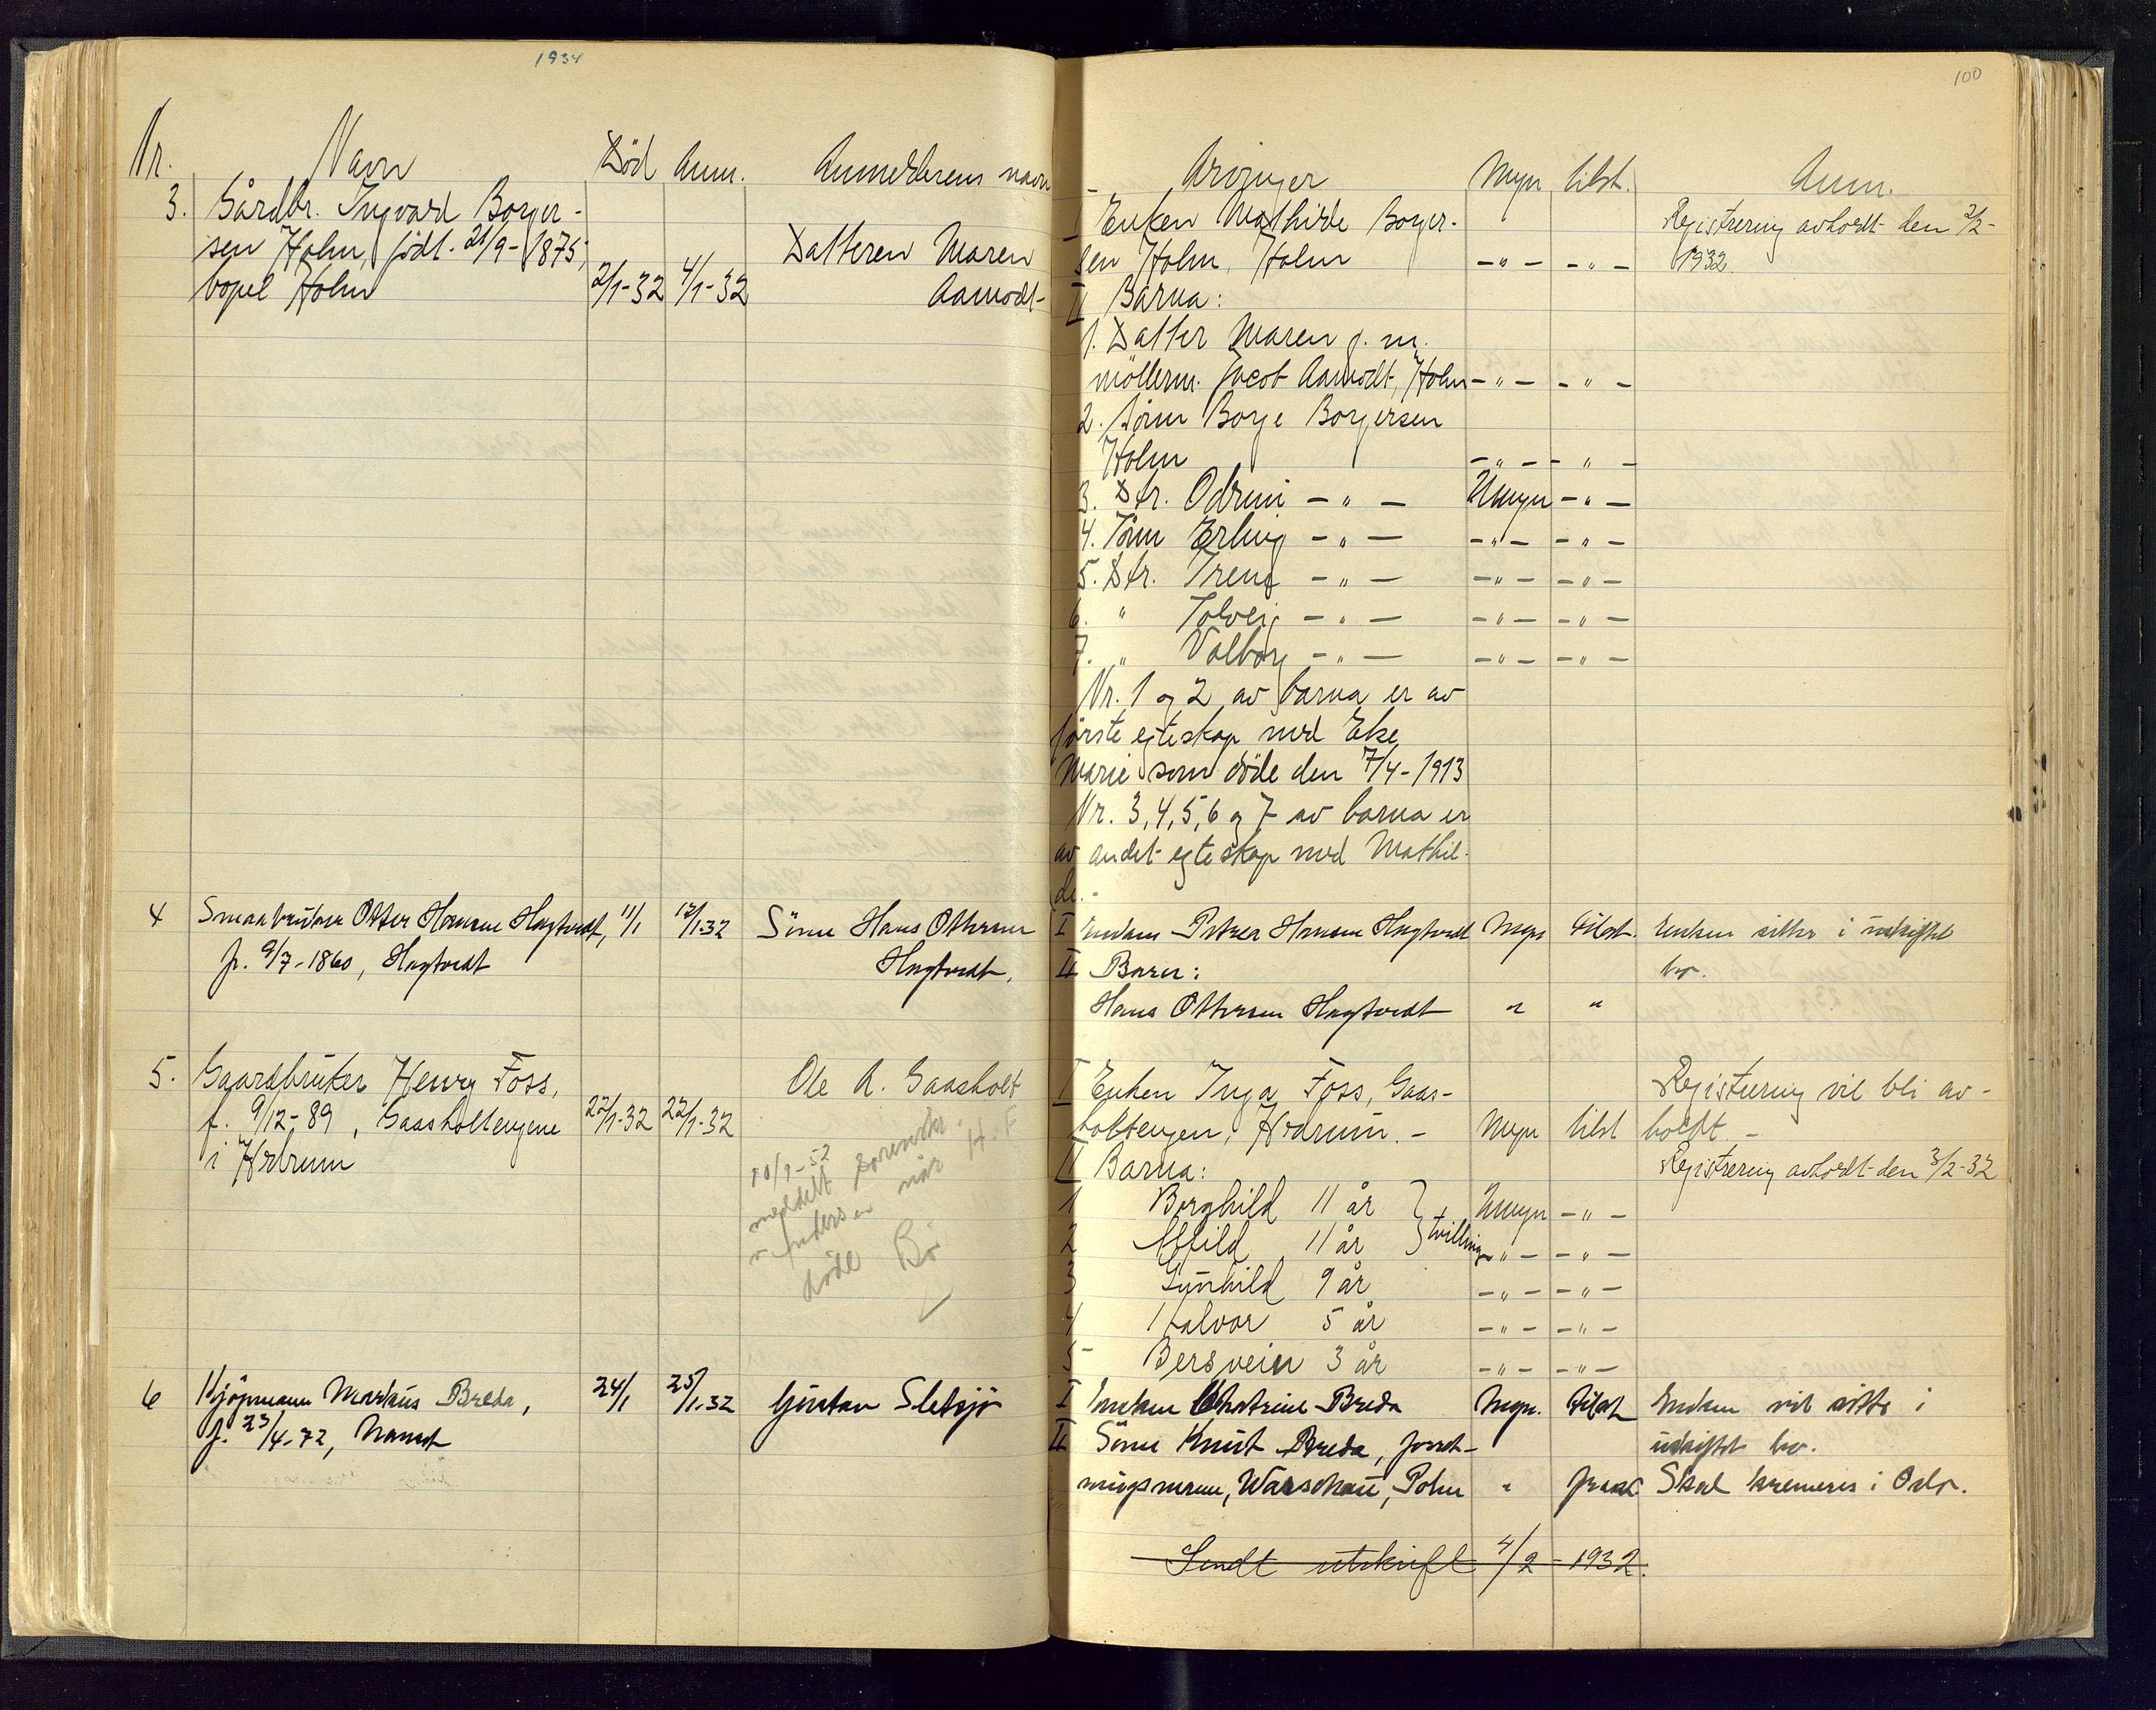 1934
Nr. Navn Död Anm. Anmelderens navn
3. Gårdbr. Ingvard Borger-
sen Holm, födt 21/9-1875,
bopel Holm 2/1-32 4/1-32 Datteren Maren
Aamodt
4 Smaabruker Otter Hansen Hagtvedt, 11/1 12/1.32 Sönn Hans Ottersen
f. 9/7-1860, Hagtvedt Hagtvedt.
5. Gaardbruker Henry Foss, Ole A. Gaasholt
f. 9/12-89, Gaasholtengene 22/1-32 22/1-32
i Hedrum
10/9-52
meddelt
döde Bö
6 Kjöpmann Markus Breda, 24/1 25/1.32 Gustav Sletsjö
f. 23/4-72, Nanset
100
Arvinger Mynd. tilst. Anm.
I Enken Mathilde Borger- Registrering avholdt den 2/2-
sen Holm, Holm -"- -"- 1932
II Barna:
1. Datter Maren g. m.
möllerm. Jacob Aamodt, Holm -"- -"-
2. Sönn Borge Borgersen
Holm -"- -"-
3. Dtr. Odrun -"- Umyn -"-
4. Sönn Erling -"- -"- -"-
5. Dtr. Irene -"- -"- -"-
6. " Solveig -"- -"- -"-
7. " Valborg -"- -"- -"-
Nr. 1 og 2 av barna er av
förste egteskap med Else
Marie som döde den 7/4-1913
Nr. 3, 4, 5, 6 og 7 av barna er
av andet egteskap med Mathil-
de.-
I Enken Petrea Hansen Hagtvedt Myn tilst. Enken sitter i uskiftet
II Barn: bo.
Hans Ottersen Hagtvedt " "
I Enken Inga Foss, Gaas- Registrering vil bli av-
holtengen, Hedrum.- Myn tilst holdt.-
II Barna: Registrering avholdt den 3/2-32
1 Borghild 11 år } tvillinger Umyn -"-
2 Alfild 11 år -"- -"-
3 Gunhild 9 år -"- -"-
4 Halvor 5 år -"- -"-
5 Bersvein 3 år -"- -"-
I Enken Chatrine Breda Myn. tilst Enken vil sitte i
II Sönn Knut Breda, forret- uskiftet bo.
ningsmann, Warschau, Polen " frav. Skal kremeres i Oslo.
Sendt utskrift 4/2-1932.